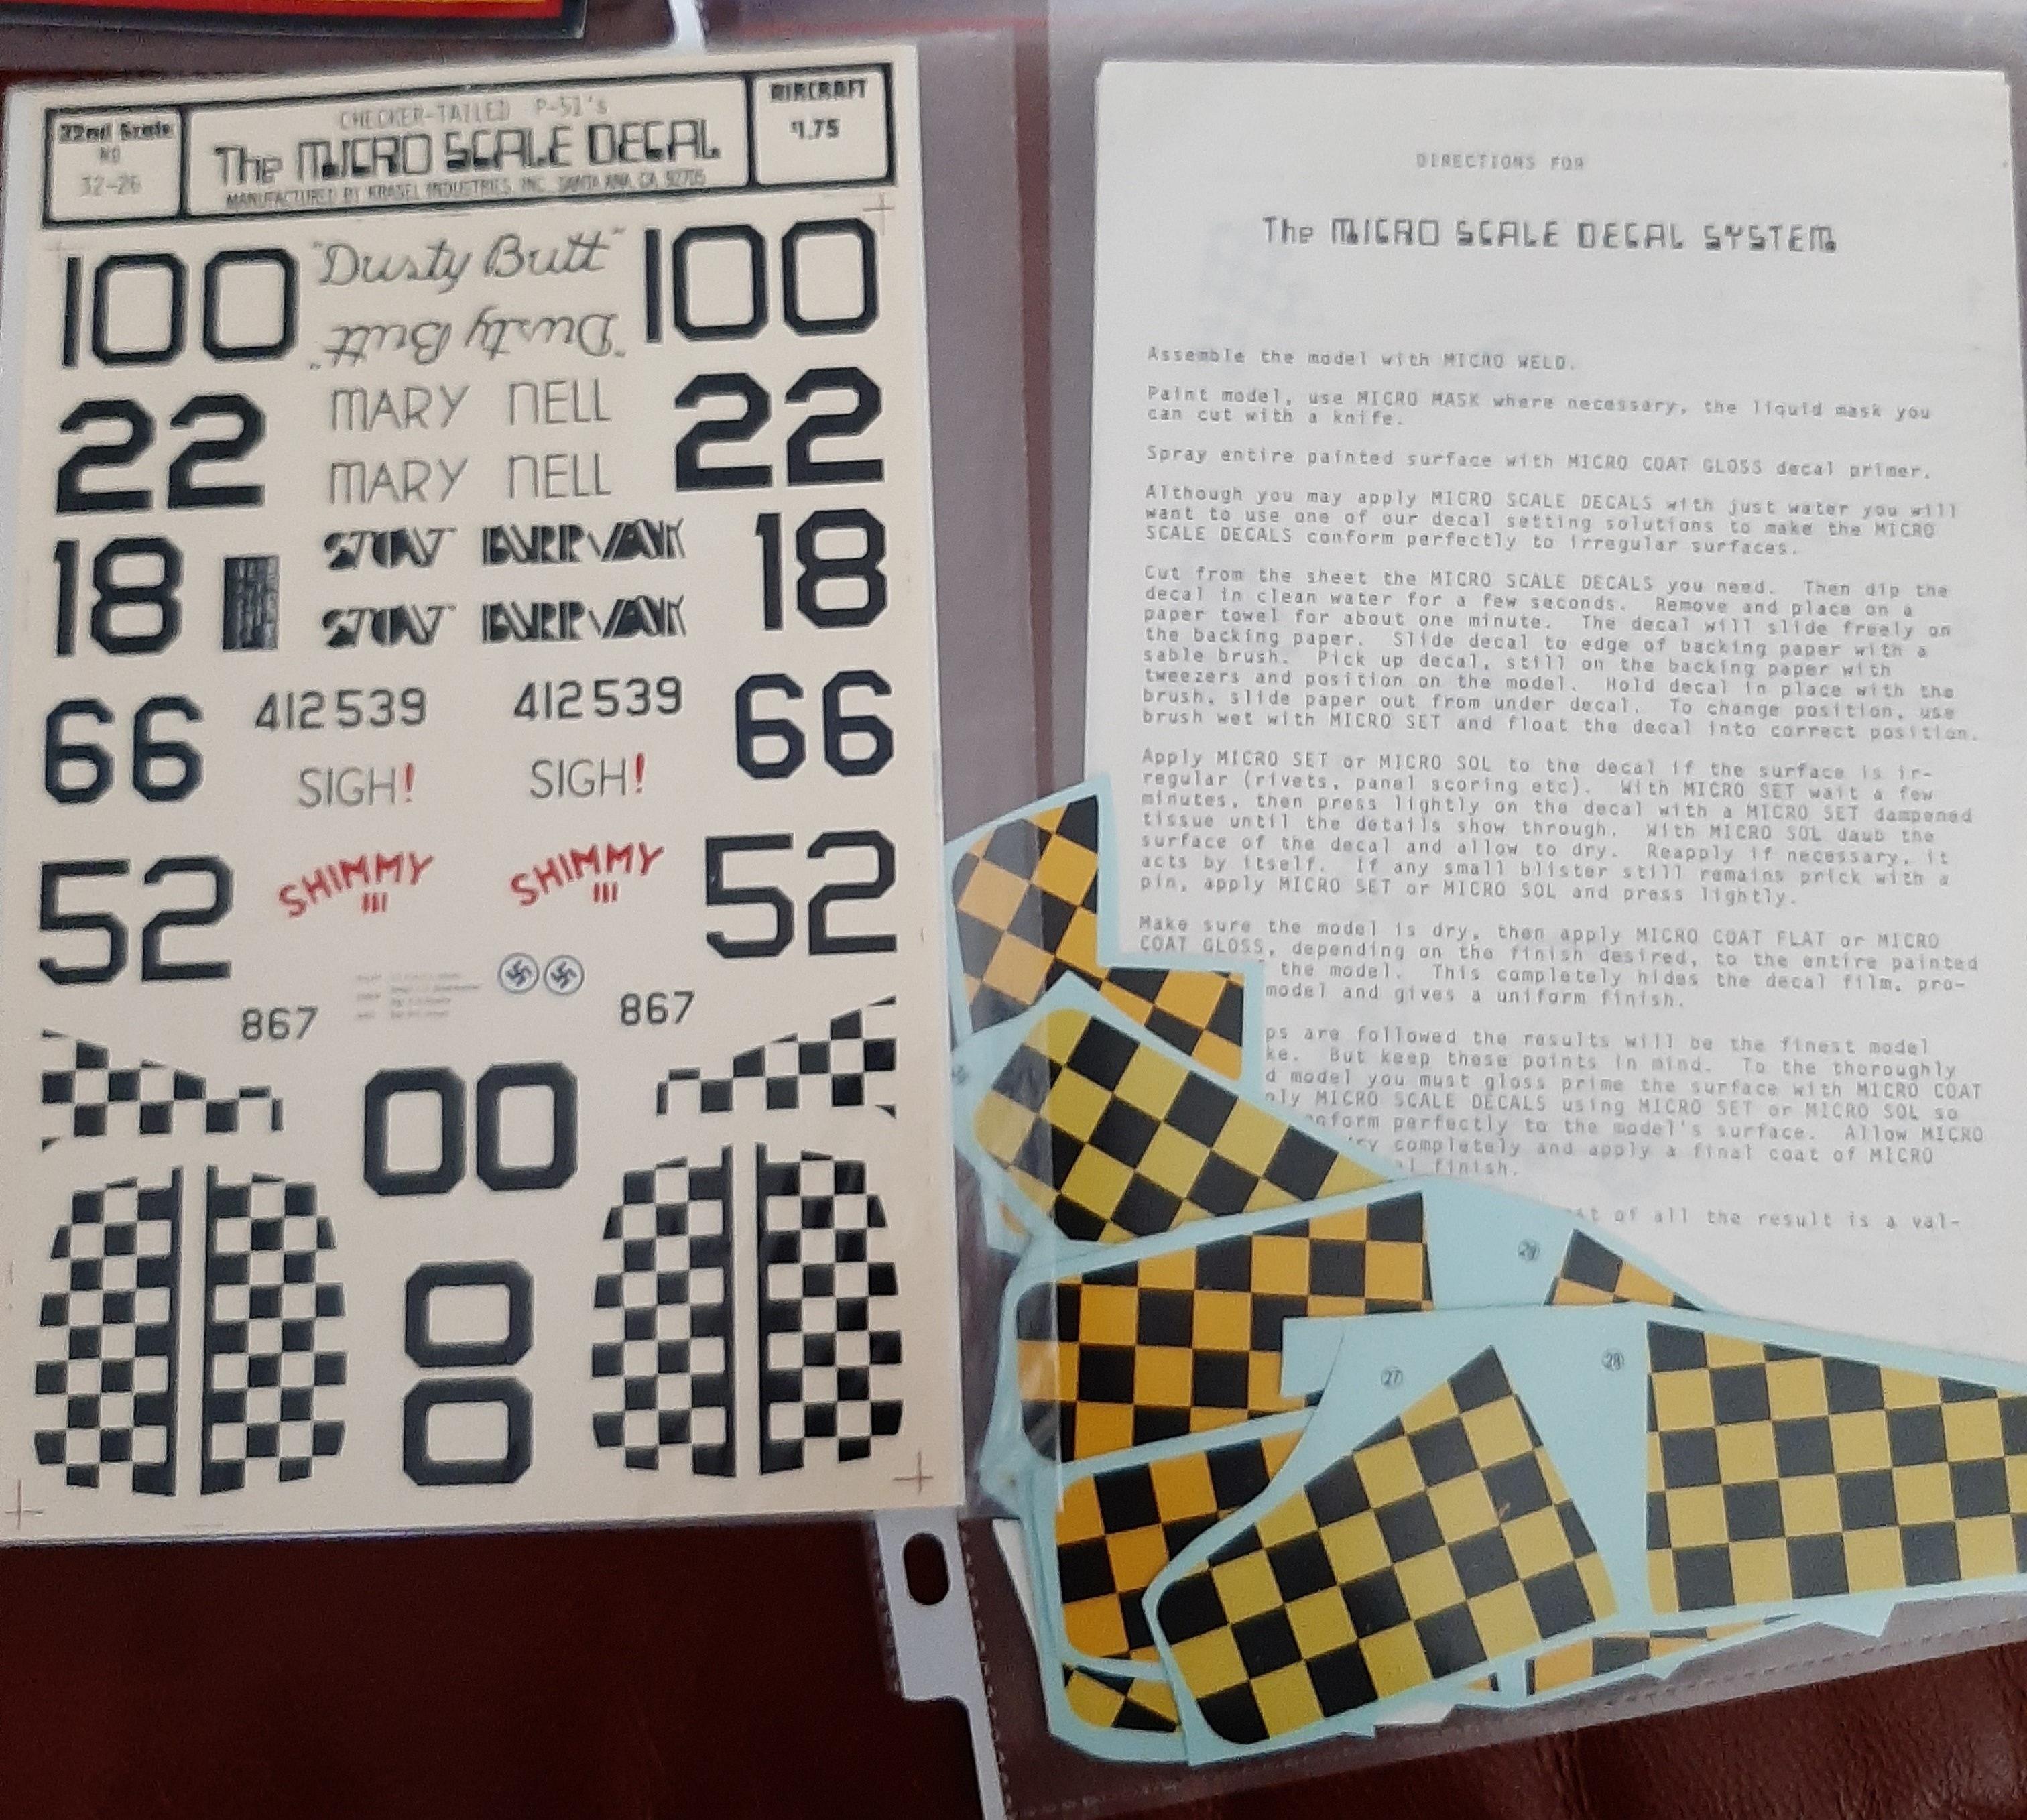 32nd Scale
NO
32-26
CHECKER-TAILED P-51's
The MICRO SCALE DECAL
MANUFACTURED BY KRASEL INDUSTRIES, INC. SANTA ANA, CA. 92705
AIRCRAFT
1.75
100 "Dusty Butt" 100
"Dusty Butt"
22 MARY NELL 22
MARY NELL
18 STOUT BURR VANK 18
STOUT BURR VANK
66 412539 412539 66
SIGH! SIGH!
52 SHIMMY SHIMMY 52
III III
867 867
00
0
0
DIRECTIONS FOR
The MICRO SCALE DECAL SYSTEM
Assemble the model with MICRO WELD.
Paint model, use MICRO MASK where necessary, the liquid mask you
can cut with a knife.
Spray entire painted surface with MICRO COAT GLOSS decal primer.
Although you may apply MICRO SCALE DECALS with just water you will
want to use one of our decal setting solutions to make the MICRO
SCALE DECALS conform perfectly to irregular surfaces.
Cut from the sheet the MICRO SCALE DECALS you need. Then dip the
decal in clean water for a few seconds. Remove and place on a
paper towel for about one minute. The decal will slide freely on
the backing paper. Slide decal to edge of backing paper with a
sable brush. Pick up decal, still on the backing paper with
tweezers and position on the model. Hold decal in place with the
brush, slide paper out from under decal. To change position, use
brush wet with MICRO SET and float the decal into correct position.
Apply MICRO SET or MICRO SOL to the decal if the surface is ir-
regular (rivets, panel scoring etc). With MICRO SET wait a few
minutes, then press lightly on the decal with a MICRO SET dampened
tissue until the details show through. With MICRO SOL daub the
surface of the decal and allow to dry. Reapply if necessary, it
acts by itself. If any small blister still remains prick with a
pin, apply MICRO SET or MICRO SOL and press lightly.
Make sure the model is dry, then apply MICRO COAT FLAT or MICRO
COAT GLOSS, depending on the finish desired, to the entire painted
the model. This completely hides the decal film, pro-
model and gives a uniform finish.
ps are followed the results will be the finest model
ke. But keep these points in mind. To the thoroughly
d model you must gloss prime the surface with MICRO COAT
ply MICRO SCALE DECALS using MICRO SET or MICRO SOL so
nform perfectly to the model's surface. Allow MICRO
ry completely and apply a final coat of MICRO
al finish.
st of all the result is a val-
29
27
28